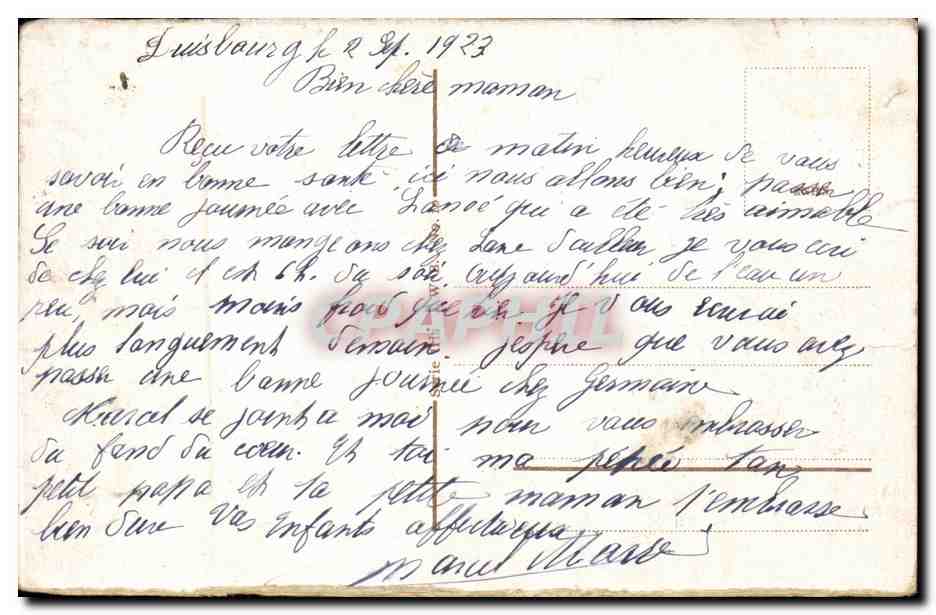 Duisbourg le 2 Sep. 1923
Bien chère maman
Reçu votre lettre ce matin heureux de vous
savoir en bonne santé ici nous allons bien; passon
une bonne journée avec qui a été très aimable
Le soir nous mangeons chez je vous ecri
de chez lui il est 6h. du soir aujourd'hui de l'eau un
peu, mais moins froid que Je vous ecrirai
plus longuement demain j'espere que vous avez
passer une bonne journée chez Germaine
Marcel se joint a moi pour vous embrasser
du fond du cœur. Et toi ma pepée ton
petit papa et ta petite maman t'embrasse
bien dure Vos Enfants affectueux
Marcel
CPAPHIL
Serie